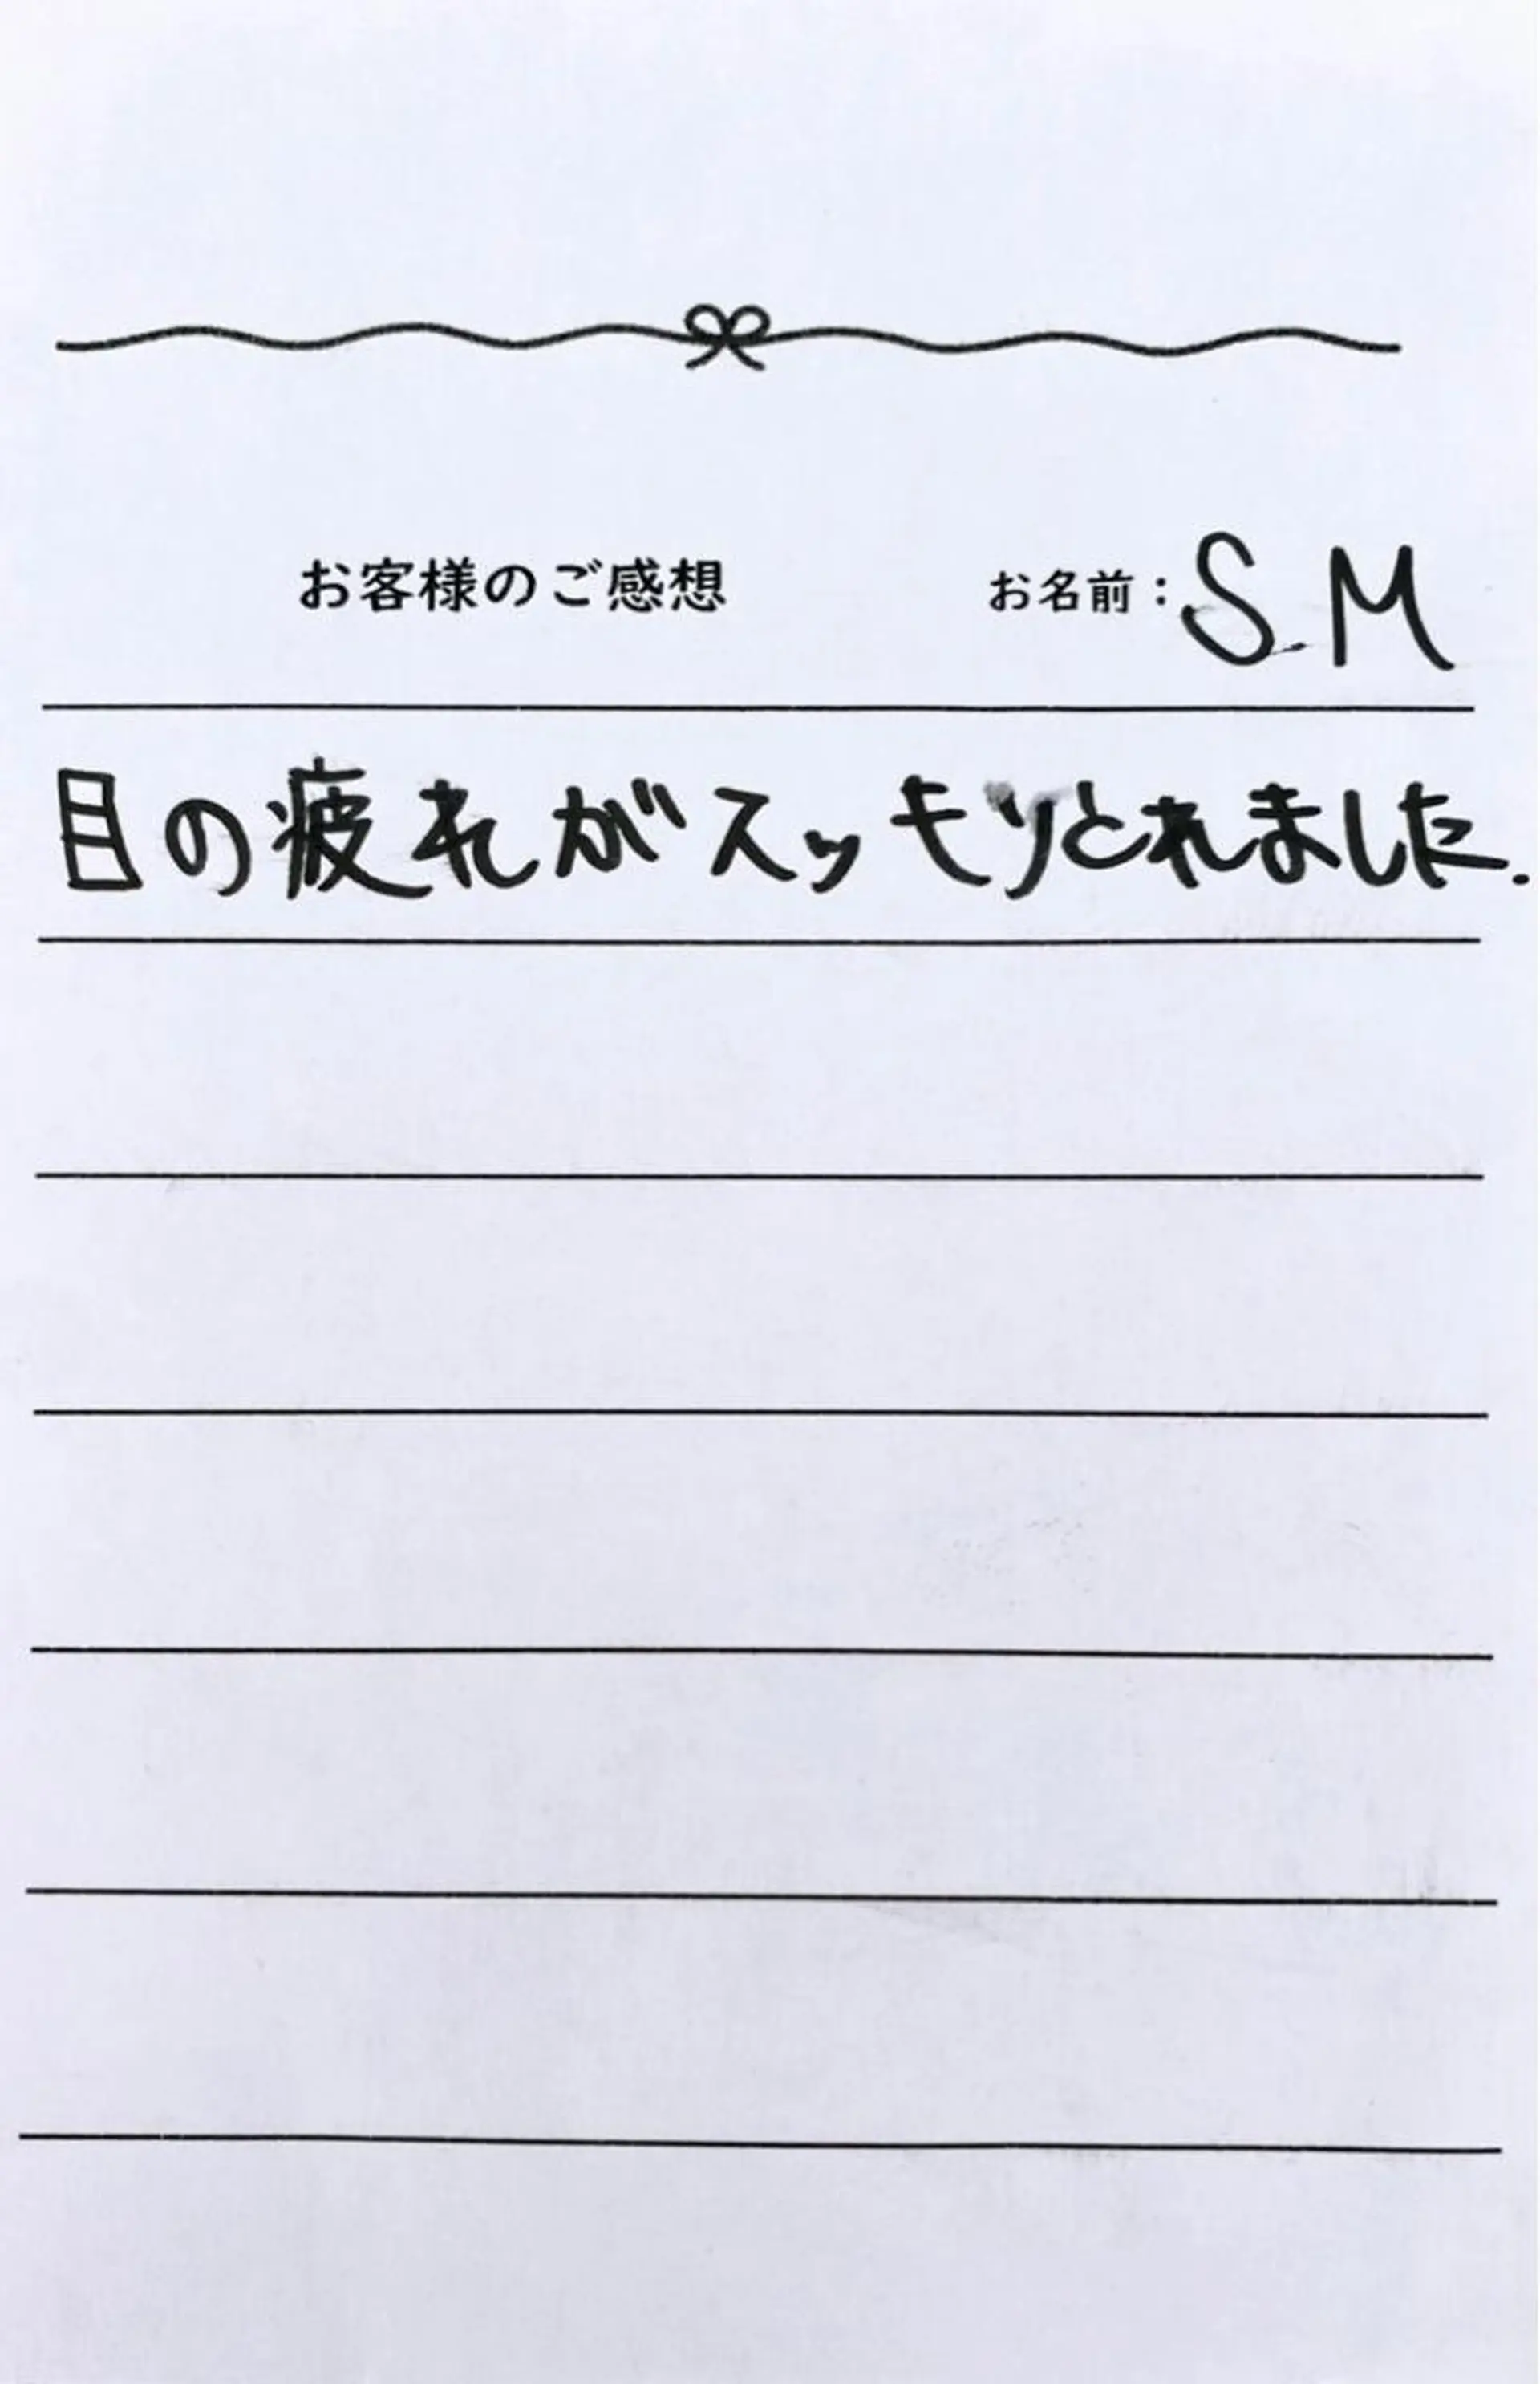 お客様のご感想 お名前：S.M
目の疲れがスッキリとれました.